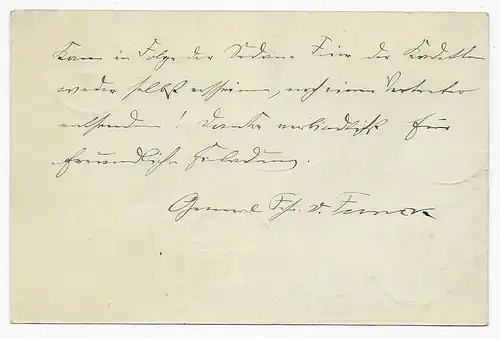 Kann in Folge der Sedan-Feier der Kadetten
weder selbst erscheinen, noch einen Vertreter
entsenden! Danke verbindlichst für
freundliche Einladung.
General Fhr. v. Funck